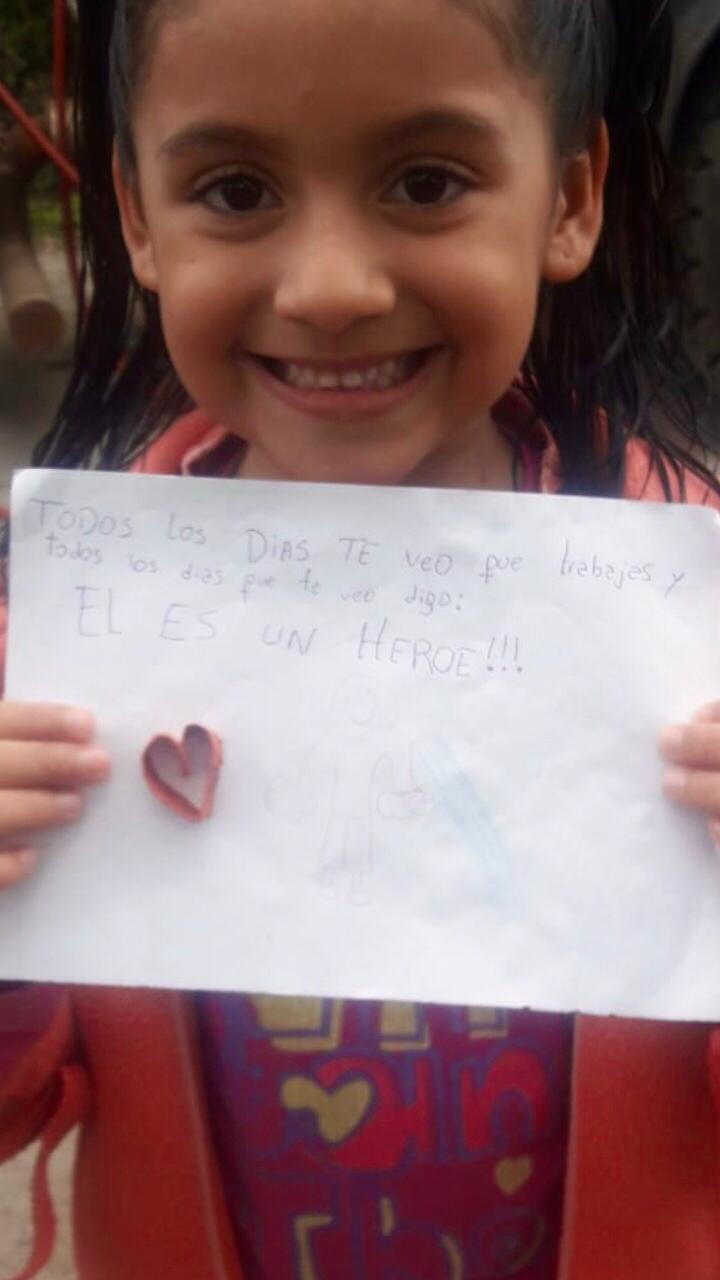 TODOS los DíAS TE veo que trabajes y
todos los dias que te veo digo:
EL ES UN HEROE!!!